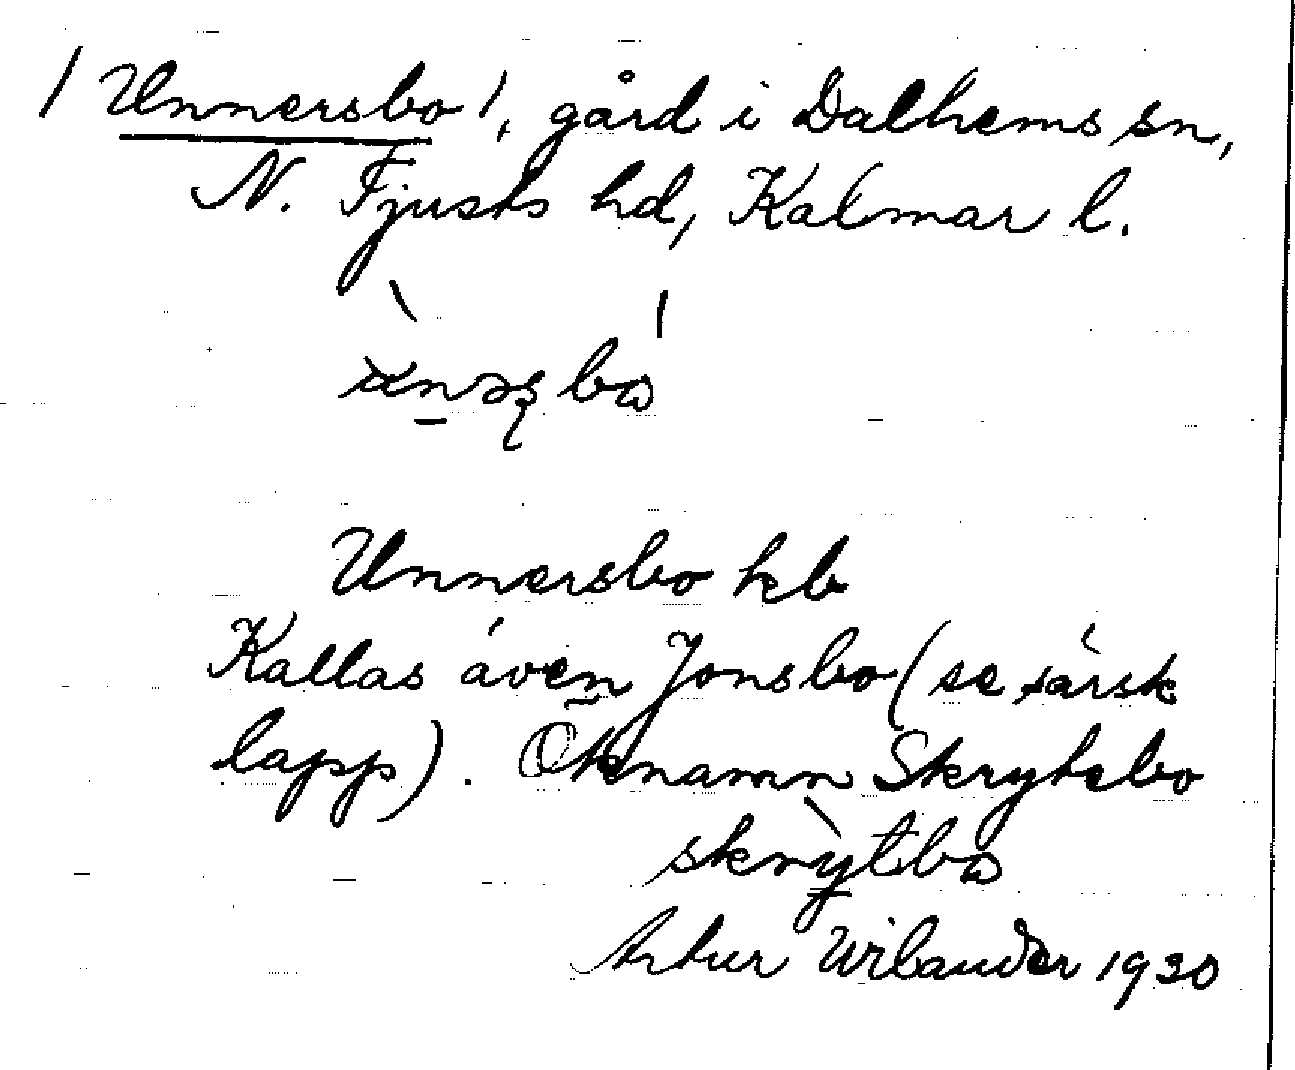 / Unnersbo /, gård i Dalhems sn,
N. Tjusts hd, Kalmar l.
Unnersbo kb
Kallas även Jonsbo (se särsk
lapp). Öknamn Skrytebo
skrỳtbω
Artur Wilander 1930